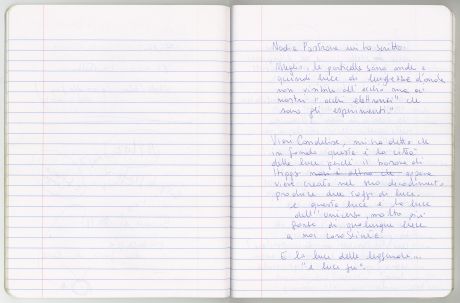 Nadia Pastrone mi ha scritto:
Meglio, le particelle sono onde e
quindi luce di lunghezze d'onda
non visibile all'occhio ma ai
nostri "occhi elettronici" che
sono gli esperimenti".
Vieri Candelise, mi ha detto che
in fondo questa è la città
della luce perché il bosone di
Higgs appena
viene creato nel suo decadimento
produce due raggi di luce.
e questa luce è la luce
dell'Universo, molto più
forte di qualunque luce
a noi conosciuta.
È la luce delle leggende...
"e luce fu".